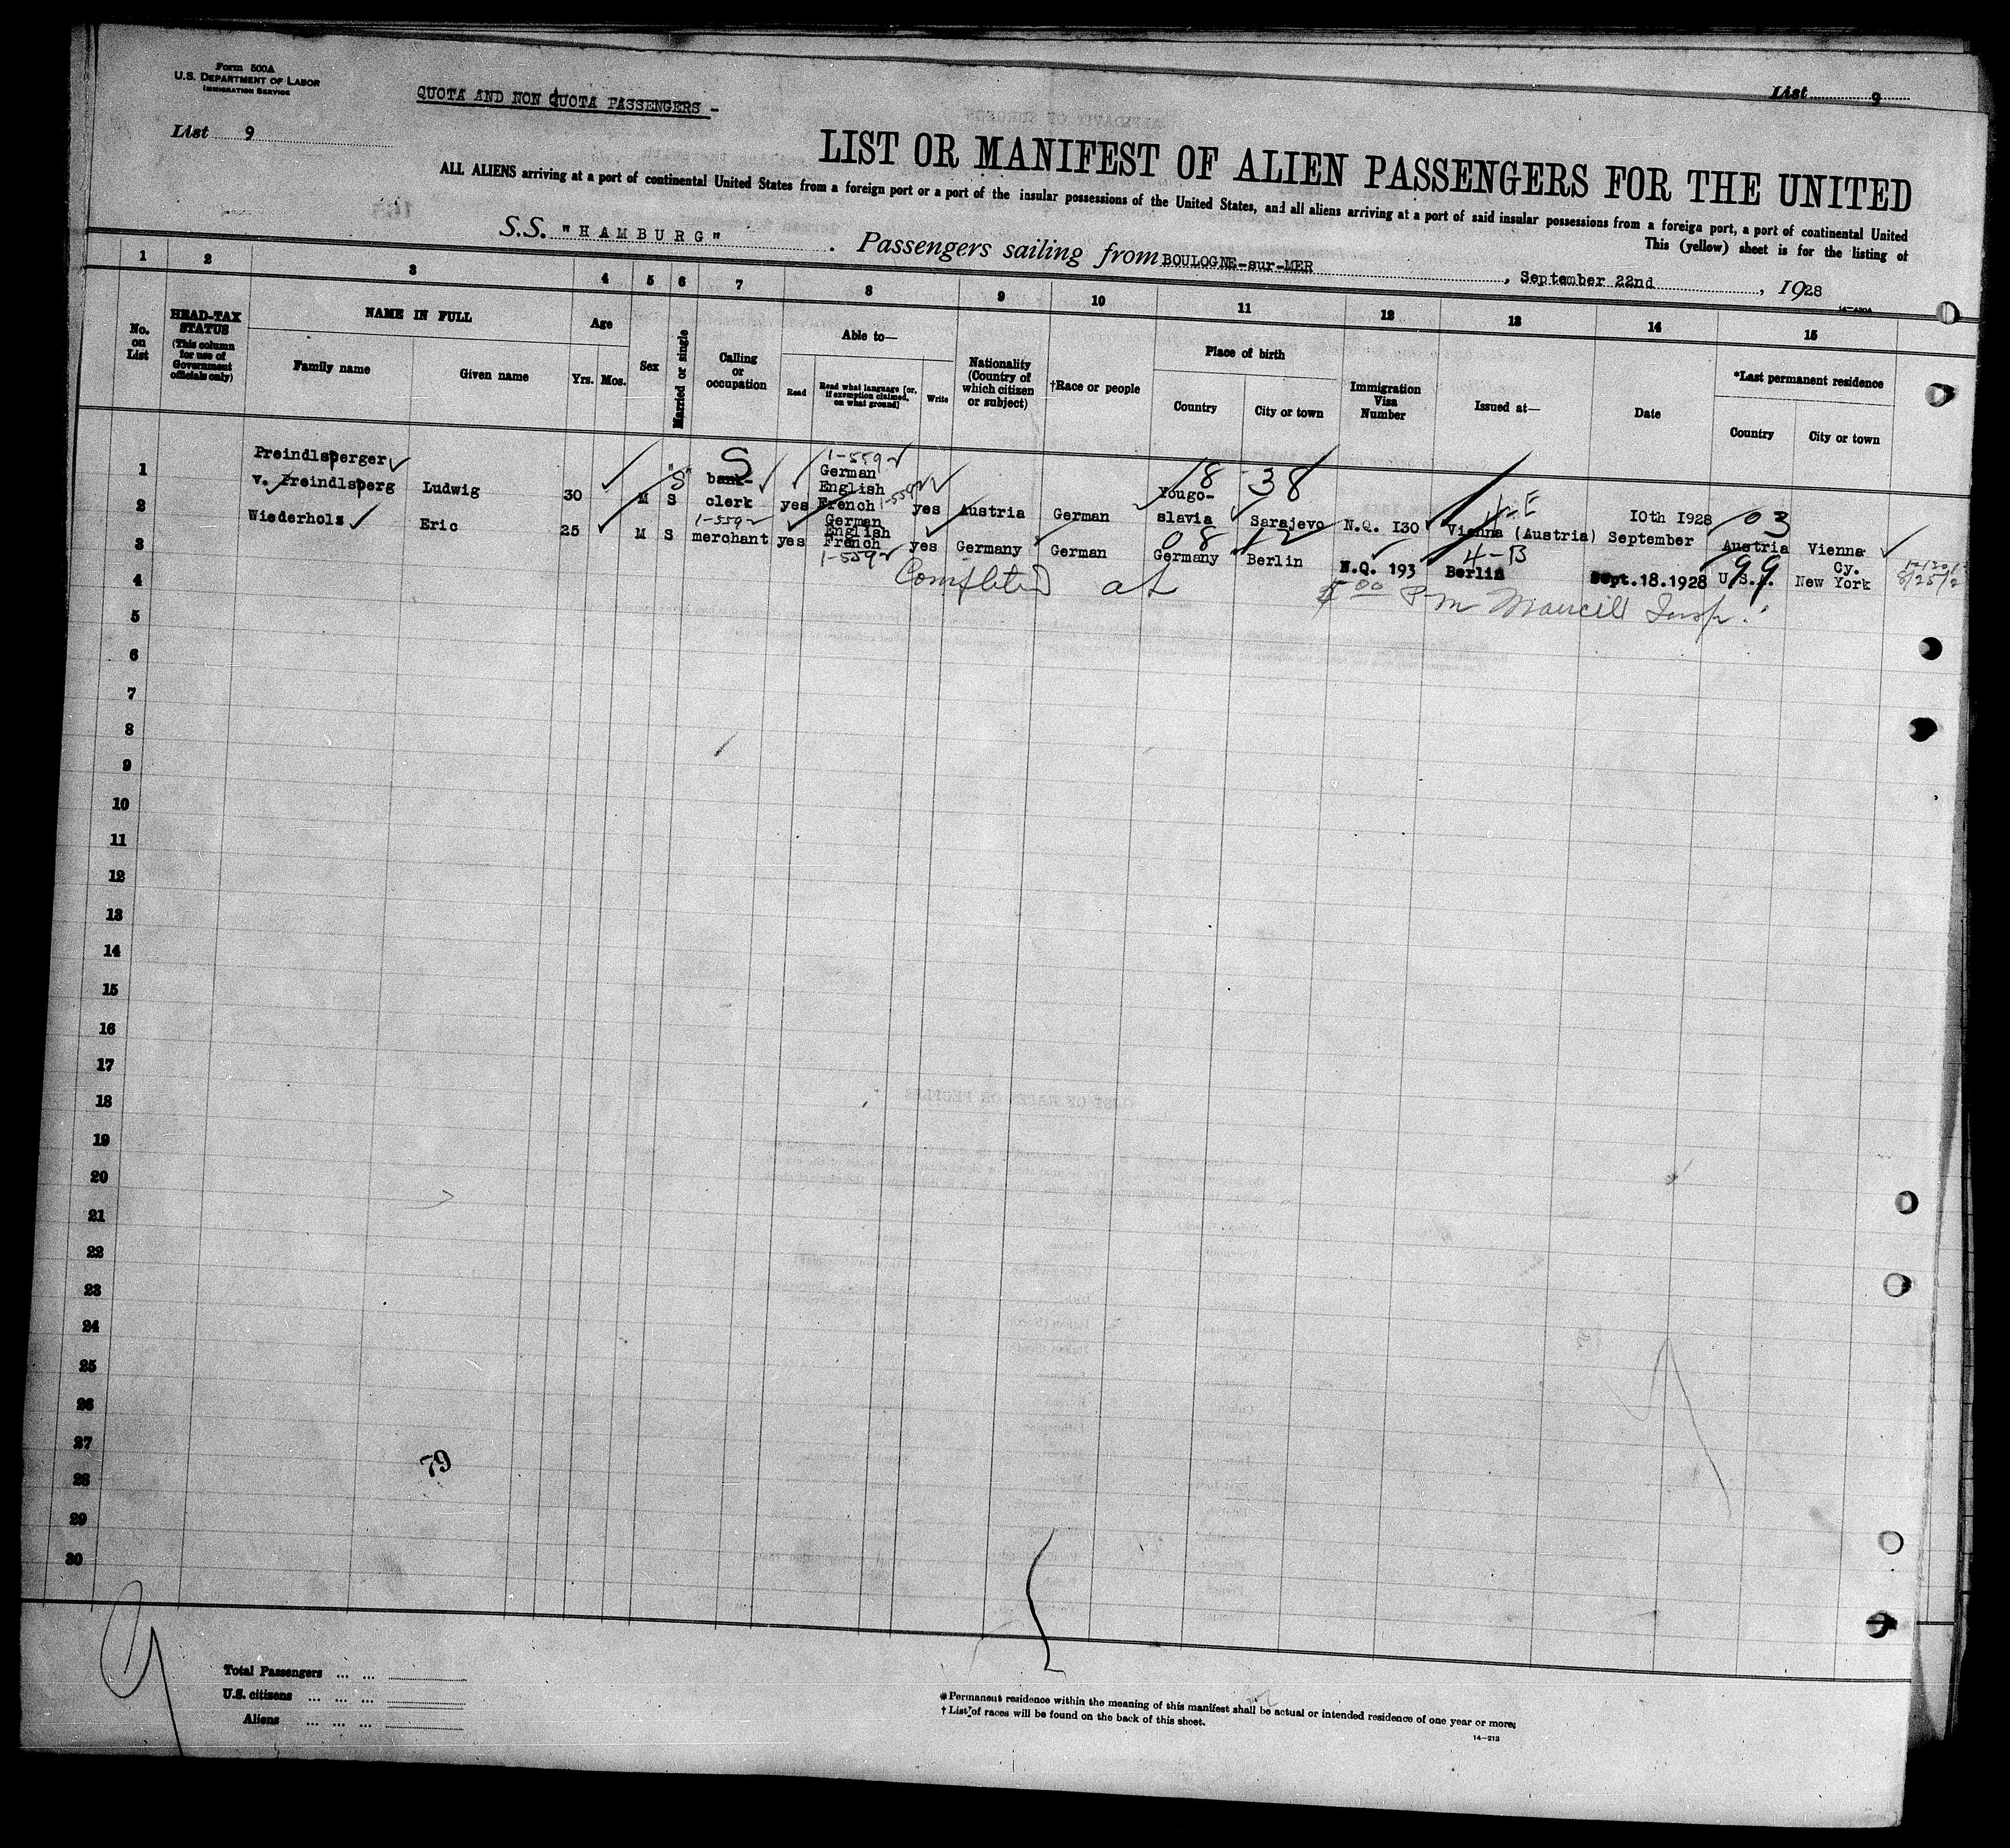 Form 500A
U.S. DEPARTMENT OF LABOR
IMMIGRATION SERVICE
QUOTA AND NON QUOTA PASSENGERS -
List 9
List 9
LIST OR MANIFEST OF ALIEN PASSENGERS FOR THE UNITED
ALL ALIENS arriving at a port of continental United States from a foreign port or a port of the insular possessions of the United States, and all aliens arriving at a port of said insular possessions from a foreign port, a port of continental United
This (yellow) sheet is for the listing of
S.S. "HAMBURG" . Passengers sailing from BOULOGNE-sur-MER , September 22nd , 1928
14-430A
1 2 3 4 5 6 7 8 9 10 11 12 13 14 15
No. on List
HEAD-TAX STATUS
(This column for use of Government officials only)
NAME IN FULL
Family name
Given name
Age
Yrs. Mos.
Sex
Married or single
Calling or occupation
Able to—
Read
Read what language [or, if exemption claimed, on what ground]
Write
Nationality (Country of which citizen or subject)
†Race or people
Place of birth
Country
City or town
Immigration Visa Number
Issued at—
Date
*Last permanent residence
Country
City or town
Preindlsperger
1 v. Preindlsperg Ludwig 30 M S "S" S bank-clerk yes 1-559 German English French 1-559 yes Austria German 18 Yougo-slavia 38 Sarajevo N.Q. I30 4-E Vienna (Austria) 10th 1928 September 03 Austria Vienna
2 Wiederholz Eric 25 M S 1-559 merchant yes German English French 1-559 yes Germany German 08 Germany 12 Berlin N.Q. 193 4-B Berlin Sept.18.1928 99 U.S.A. Cy. New York
3
Completed at 5 00 P m Insp.
4
5
6
7
8
9
10
11
12
13
14
15
16
17
18
19
20
21
22
23
24
25
26
27
79
28
29
30
Total Passengers ... ...
U.S. citizens ... ... ...
Aliens ... ... ...
*Permanent residence within the meaning of this manifest shall be actual or intended residence of one year or more.
†List of races will be found on the back of this sheet.
14—213